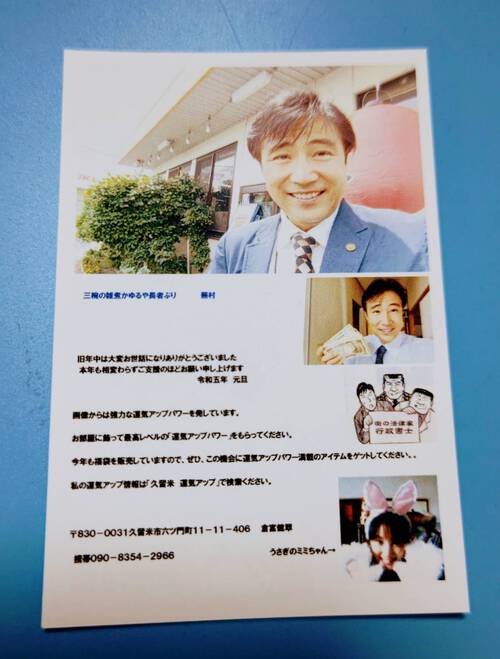 三椀の雑煮かゆるや長者ぶり　蕪村
旧年中は大変お世話になりありがとうございました
本年も相変わらずご支援のほどお願い申し上げます
令和五年　元旦
街の法律家
行政書士
画像からは強力な運気アップパワーを発しています。
お部屋に飾って最高レベルの「運気アップパワー」をもらってください。
今年も福袋を販売していますので、ぜひ、この機会に運気アップパワー満載のアイテムをゲットしてください。.
私の運気アップ情報は「久留米　運気アップ」で検索ください。
〒830-0031久留米市六ツ門町11-11-406　倉富健草
携帯090-8354-2966　うさぎのミミちゃん→